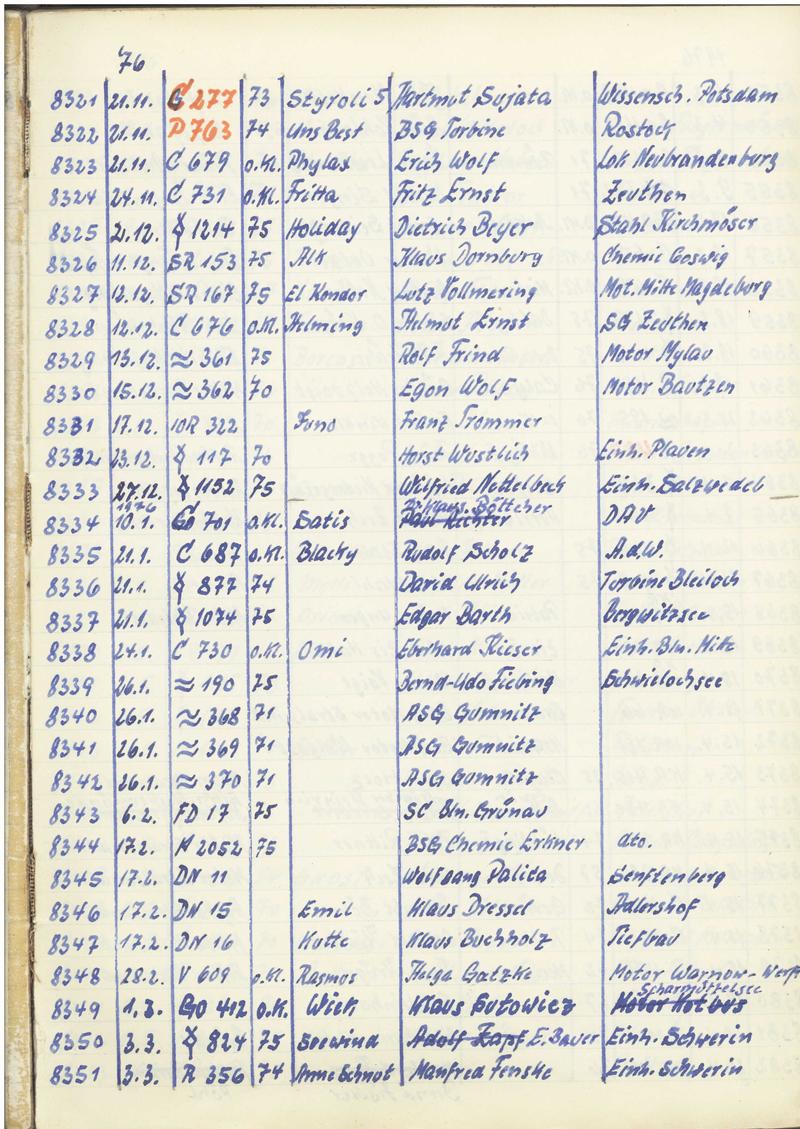 76
8321 21.11. C 277 73 Styroli 5 Hartmut Sujata Wissensch. Potsdam
8322 21.11. P 763 74 Uns Best BSG Turbine Rostock
8323 21.11. C 679 o.Kl. Phylax Erich Wolf Lok Neubrandenburg
8324 24.11. C 731 o.Kl. Fritta Fritz Ernst Zeuthen
8325 2.12. 1214 75 Holiday Dietrich Beyer Stahl Kirchmöser
8326 11.12. SR 153 75 Alk Klaus Dornburg Chemie Coswig
8327 12.12. SR 167 75 El Kondor Lutz Vollmering Mot. Mitte Magdeburg
8328 12.12. C 676 o.Kl. Helming Helmut Ernst SG Zeuthen
8329 13.12. ≈ 361 75 Rolf Frind Motor Mylau
8330 15.12. ≈ 362 70 Egon Wolf Motor Bautzen
8331 17.12. 10R 322 Juno Franz Trommer
8332 23.12. 117 70 Horst Wustlich Einh. Plauen
8333 27.12. 1152 75 Wilfried Nettelbeck Einh. Salzwedel
1976 Klaus Böttcher
8334 10.1. Go 701 o.Kl. Satis Paul Richter DAV
8335 21.1. C 687 o.Kl. Blacky Rudolf Scholz AdW
8336 21.1. 877 74 David Ulrich Turbine Bleiloch
8337 21.1. 1074 75 Edgar Barth Bergwitzsee
8338 24.1. C 730 o.Kl. Omi Eberhard Kieser Einh. Bln. Mitte
8339 26.1. ≈ 190 75 Bernd-Udo Fiebing Schwielochsee
8340 26.1. ≈ 368 71 ASG Gumnitz
8341 26.1. ≈ 369 71 ASG Gumnitz
8342 26.1. ≈ 370 71 ASG Gumnitz
8343 6.2. FD 17 75 SC Bln. Grünau
8344 17.2. 2052 75 BSG Chemie Erkner dto.
8345 17.2. DN 11 Wolfgang Palica Senftenberg
8346 17.2. DN 15 Emil Klaus Dressel Adlershof
8347 17.2. DN 16 Kutte Klaus Buchholz Tiefbau
8348 28.2. V 609 o.Kl. Rasmus Helga Gatzke Motor Warnow-Werft
Scharmützelsee
8349 1.3. GO 412 o.K. Wiek Klaus Gutowicz Motor Kotbus
8350 3.3. 824 75 Seewind Adolf Zapf E. Bauer Einh. Schwerin
8351 3.3. R 356 74 Anne Schnut Manfred Fenske Einh. Schwerin